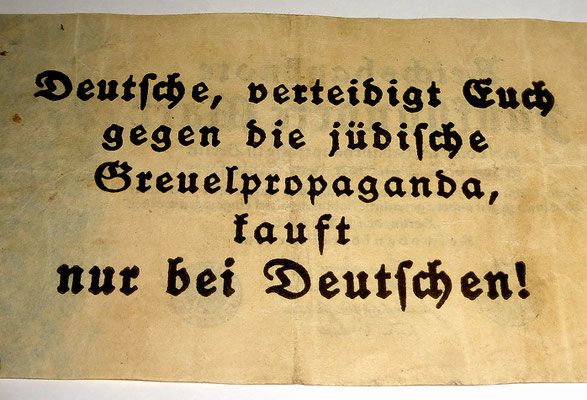 Deutsche, verteidigt Euch
gegen die jüdische
Greuelpropaganda,
kauft
nur bei Deutschen!